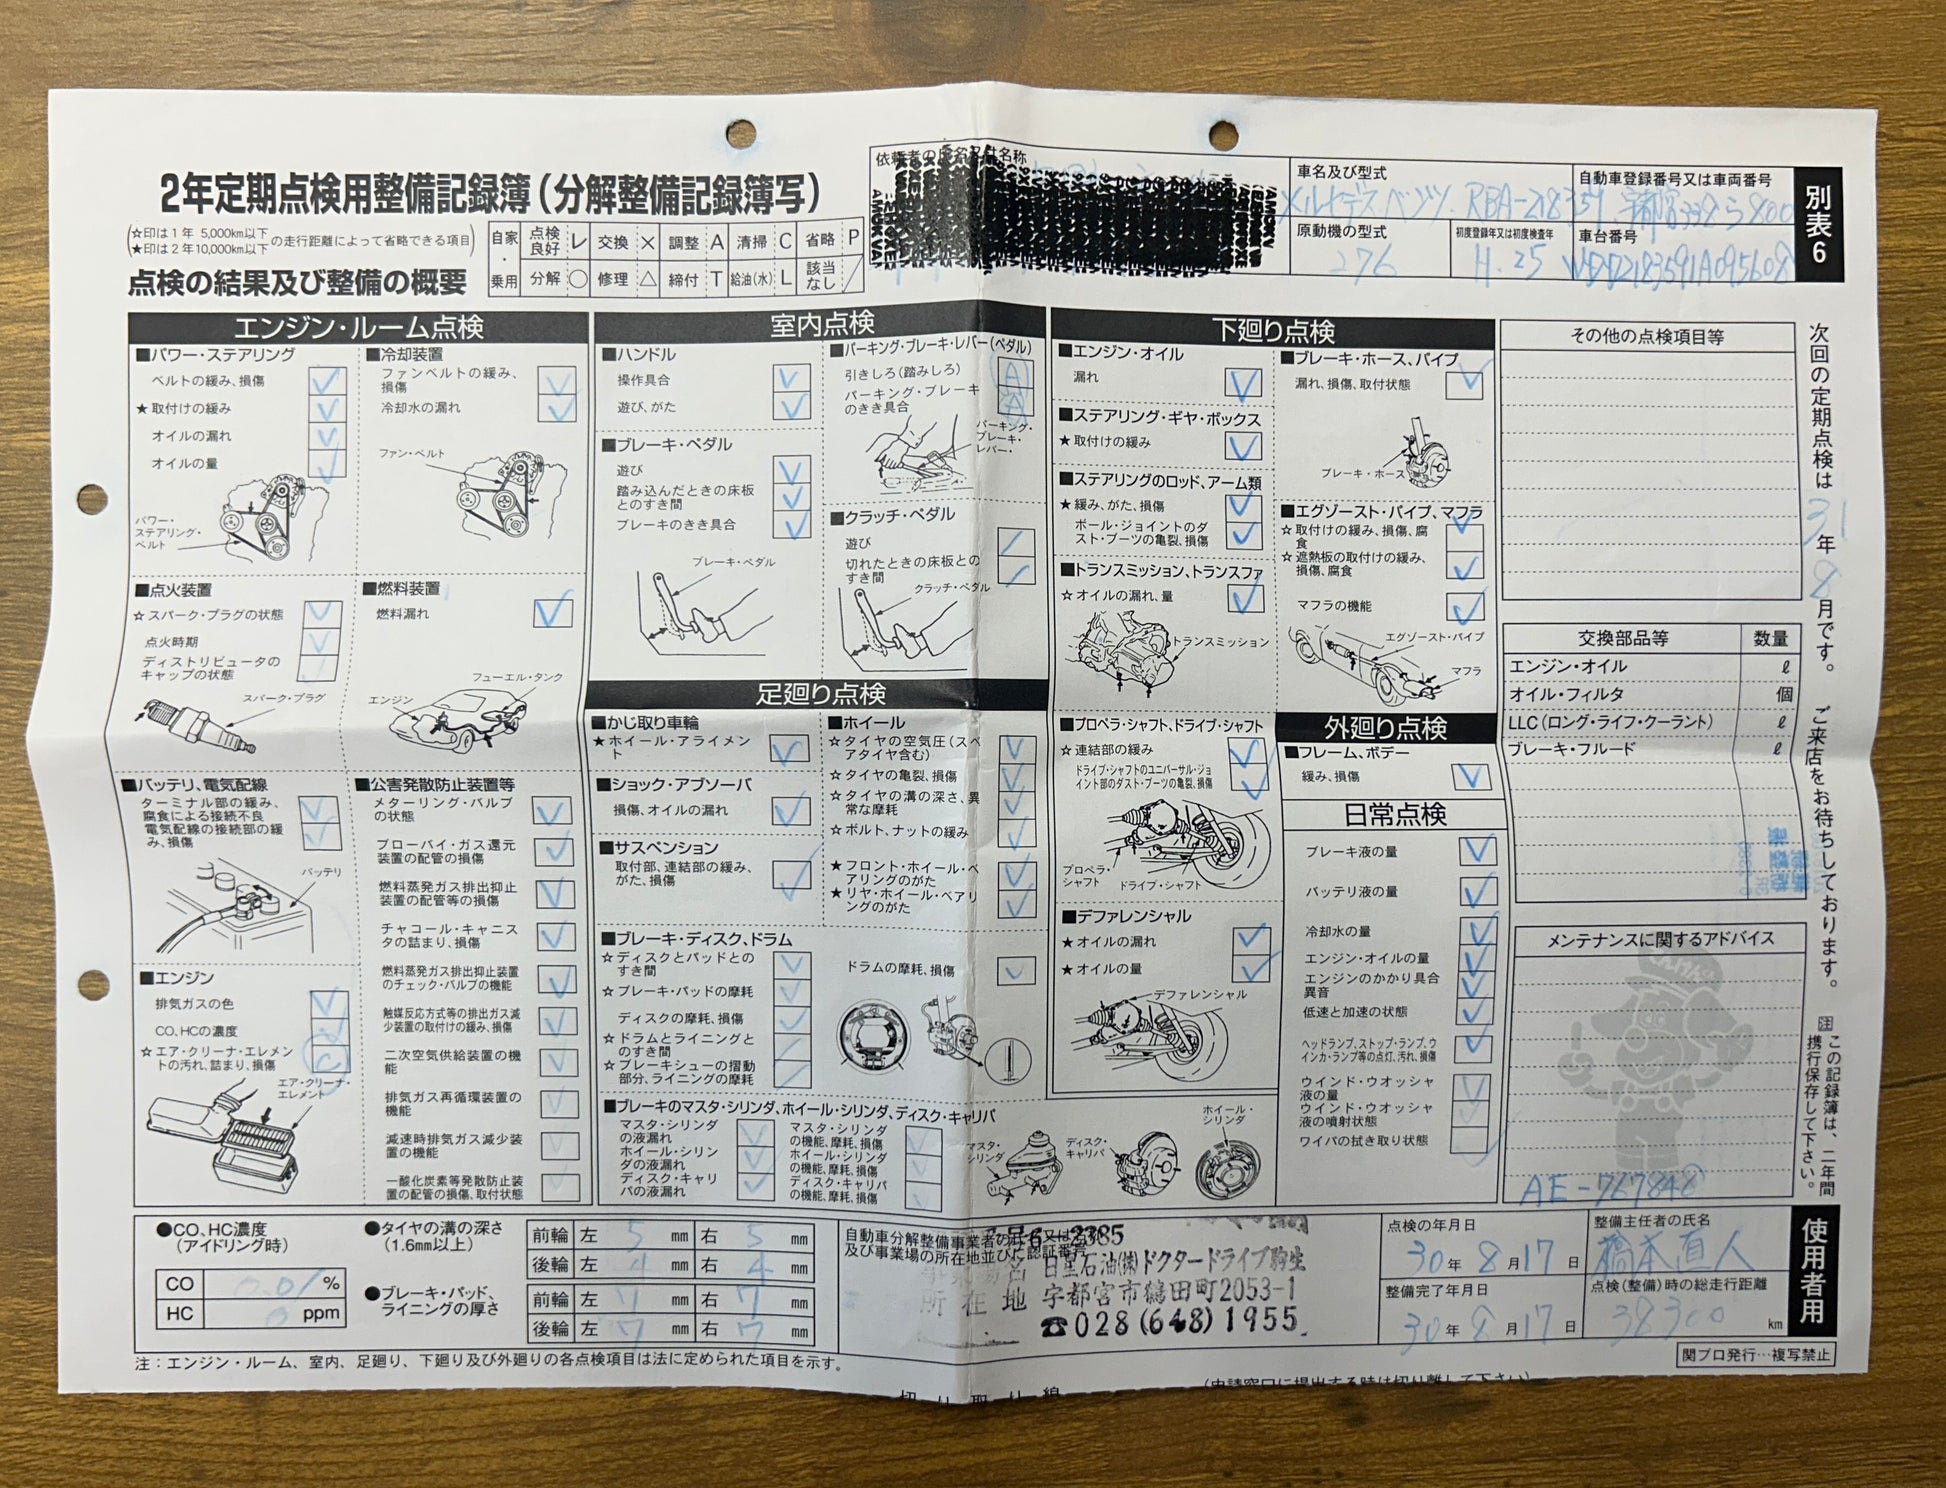 2年定期点検用整備記録簿(分解整備記録簿写)
☆印は1年 5,000km以下
★印は2年10,000km以下
の走行距離によって省略できる項目
点検の結果及び整備の概要
自家・乗用
点検良好 レ 交換 × 調整 A 清掃 C 省略 P
分解 ○ 修理 △ 締付 T 給油(水) L 該当なし /
依頼者の氏名又は名称
車名及び型式
メルセデスベンツ RBA-218359
自動車登録番号又は車両番号
宇都宮338ら800
原動機の型式
276
初度登録年又は初度検査年
H.25
車台番号
WDD2183591A095608
別表6
エンジン・ルーム点検
■パワー・ステアリング
ベルトの緩み、損傷
★取付けの緩み
オイルの漏れ
オイルの量
パワー・ステアリング・ベルト
■冷却装置
ファンベルトの緩み、損傷
冷却水の漏れ
ファン・ベルト
■点火装置
☆スパーク・プラグの状態
点火時期
ディストリビュータのキャップの状態
スパーク・プラグ
■燃料装置
燃料漏れ
フューエル・タンク
エンジン
■バッテリ、電気配線
ターミナル部の緩み、腐食による接続不良
電気配線の接続部の緩み、損傷
バッテリ
■エンジン
排気ガスの色
CO、HCの濃度
☆エア・クリーナ・エレメントの汚れ、詰まり、損傷
エア・クリーナ・エレメント
■公害発散防止装置等
メターリング・バルブの状態
ブローバイ・ガス還元装置の配管の損傷
燃料蒸発ガス排出抑止装置の配管等の損傷
チャコール・キャニスタの詰まり、損傷
燃料蒸発ガス排出抑止装置のチェック・バルブの機能
触媒反応方式等の排出ガス減少装置の取付けの緩み、損傷
二次空気供給装置の機能
排気ガス再循環装置の機能
減速時排気ガス減少装置の機能
一酸化炭素等発散防止装置の配管の損傷、取付状態
室内点検
■ハンドル
操作具合
遊び、がた
■ブレーキ・ペダル
遊び
踏み込んだときの床板とのすき間
ブレーキのきき具合
ブレーキ・ペダル
■パーキング・ブレーキ・レバー(ペダル)
引きしろ(踏みしろ)
パーキング・ブレーキのきき具合
パーキング・ブレーキ・レバー
■クラッチ・ペダル
遊び
切れたときの床板とのすき間
クラッチ・ペダル
足廻り点検
■かじ取り車輪
★ホイール・アライメント
■ショック・アブソーバ
損傷、オイルの漏れ
■サスペンション
取付部、連結部の緩み、がた、損傷
■ホイール
☆タイヤの空気圧(スペアタイヤ含む)
☆タイヤの亀裂、損傷
☆タイヤの溝の深さ、異常な摩耗
☆ボルト、ナットの緩み
★フロント・ホイール・ベアリングのがた
★リヤ・ホイール・ベアリングのがた
■ブレーキ・ディスク、ドラム
☆ディスクとパッドとのすき間
☆ブレーキ・パッドの摩耗
ディスクの摩耗、損傷
☆ドラムとライニングとのすき間
☆ブレーキシューの摺動部分、ライニングの摩耗
ドラムの摩耗、損傷
■ブレーキのマスタ・シリンダ、ホイール・シリンダ、ディスク・キャリパ
マスタ・シリンダの液漏れ
ホイール・シリンダの液漏れ
ディスク・キャリパの液漏れ
マスタ・シリンダの機能、摩耗、損傷
ホイール・シリンダの機能、摩耗、損傷
ディスク・キャリパの機能、摩耗、損傷
マスタ・シリンダ
ディスク・キャリパ
ホイール・シリンダ
下廻り点検
■エンジン・オイル
漏れ
■ステアリング・ギヤ・ボックス
★取付けの緩み
■ステアリングのロッド、アーム類
★緩み、がた、損傷
ボール・ジョイントのダスト・ブーツの亀裂、損傷
■トランスミッション、トランスファ
☆オイルの漏れ、量
トランスミッション
■プロペラ・シャフト、ドライブ・シャフト
☆連結部の緩み
ドライブ・シャフトのユニバーサル・ジョイント部のダスト・ブーツの亀裂、損傷
プロペラ・シャフト
ドライブ・シャフト
■デファレンシャル
★オイルの漏れ
★オイルの量
デファレンシャル
■ブレーキ・ホース、パイプ
漏れ、損傷、取付状態
ブレーキ・ホース
■エグゾースト・パイプ、マフラ
☆取付けの緩み、損傷、腐食
☆遮熱板の取付けの緩み、損傷、腐食
マフラの機能
エグゾースト・パイプ
マフラ
外廻り点検
■フレーム、ボデー
緩み、損傷
日常点検
ブレーキ液の量
バッテリ液の量
冷却水の量
エンジン・オイルの量
エンジンのかかり具合 異音
低速と加速の状態
ヘッドランプ、ストップ・ランプ、ウインカ・ランプ等の点灯、汚れ、損傷
ウインド・ウオッシャ液の量
ウインド・ウオッシャ液の噴射状態
ワイパの拭き取り状態
その他の点検項目等
交換部品等 数量
エンジン・オイル ℓ
オイル・フィルタ 個
LLC(ロング・ライフ・クーラント) ℓ
ブレーキ・フルード ℓ
メンテナンスに関するアドバイス
AE-767848
次回の定期点検は31年8月です。ご来店をお待ちしております。
注 この記録簿は、二年間携行保存して下さい。
●CO、HC濃度(アイドリング時)
CO 0.01 %
HC 0 ppm
●タイヤの溝の深さ(1.6mm以上)
前輪 左 5 mm 右 5 mm
後輪 左 4 mm 右 4 mm
●ブレーキ・パッド、ライニングの厚さ
前輪 左 7 mm 右 7 mm
後輪 左 7 mm 右 7 mm
自動車分解整備事業者の氏名又は名称及び事業場の所在地並びに認証番号
6-2385
日星石油(株)ドクタードライブ駒生
所在地 宇都宮市鶴田町2053-1
☎028(648)1955
点検の年月日
30年8月17日
整備完了年月日
30年8月17日
整備主任者の氏名
橋本直人
点検(整備)時の総走行距離
38300 km
使用者用
注：エンジン・ルーム、室内、足廻り、下廻り及び外廻りの各点検項目は法に定められた項目を示す。
関プロ発行…複写禁止
切り取り線
(申請窓口に提出する時は切り離して下さい)